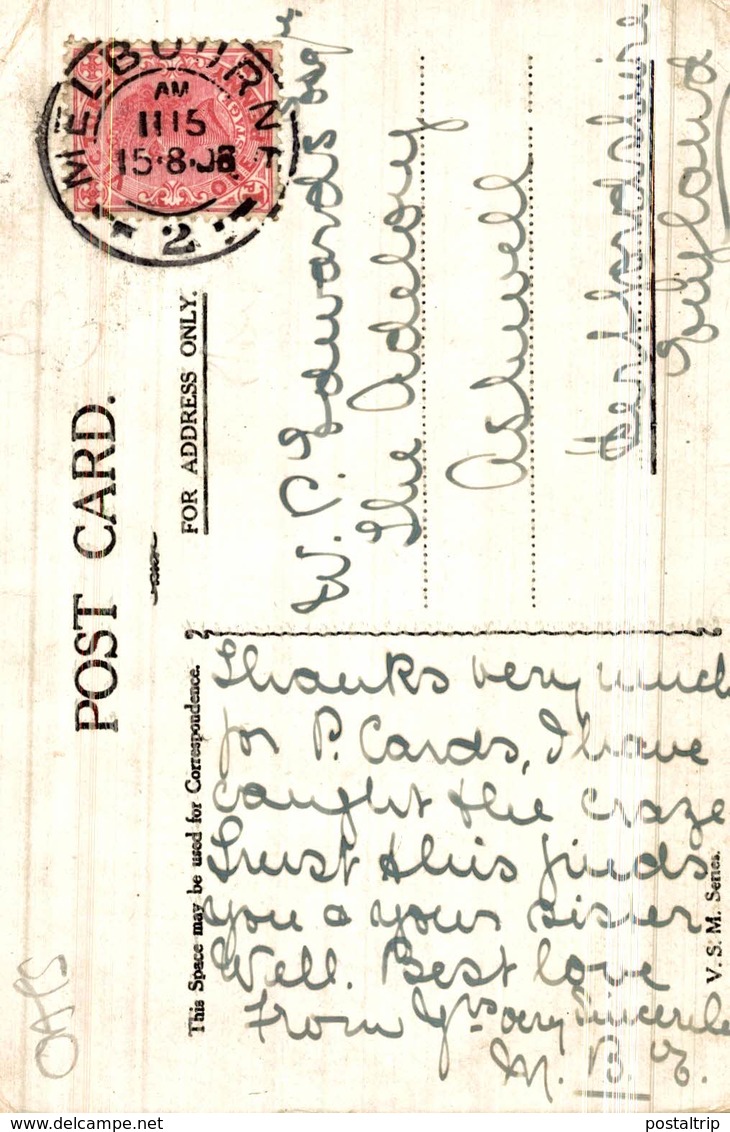 POST CARD.
This Space may be used for Correspondence.
FOR ADDRESS ONLY.
MELBOURNE
AM
11 15
15·8·08
2
Thanks very much
for P. Cards, I have
caught the craze
Trust this finds
you & your sister
Well. Best love
From Yrs very Sincerely
M. B.
W. P. Edwards Esqre
The
Ashwell
Hertfordshire
England
V. S. M. Series.
postaltrip